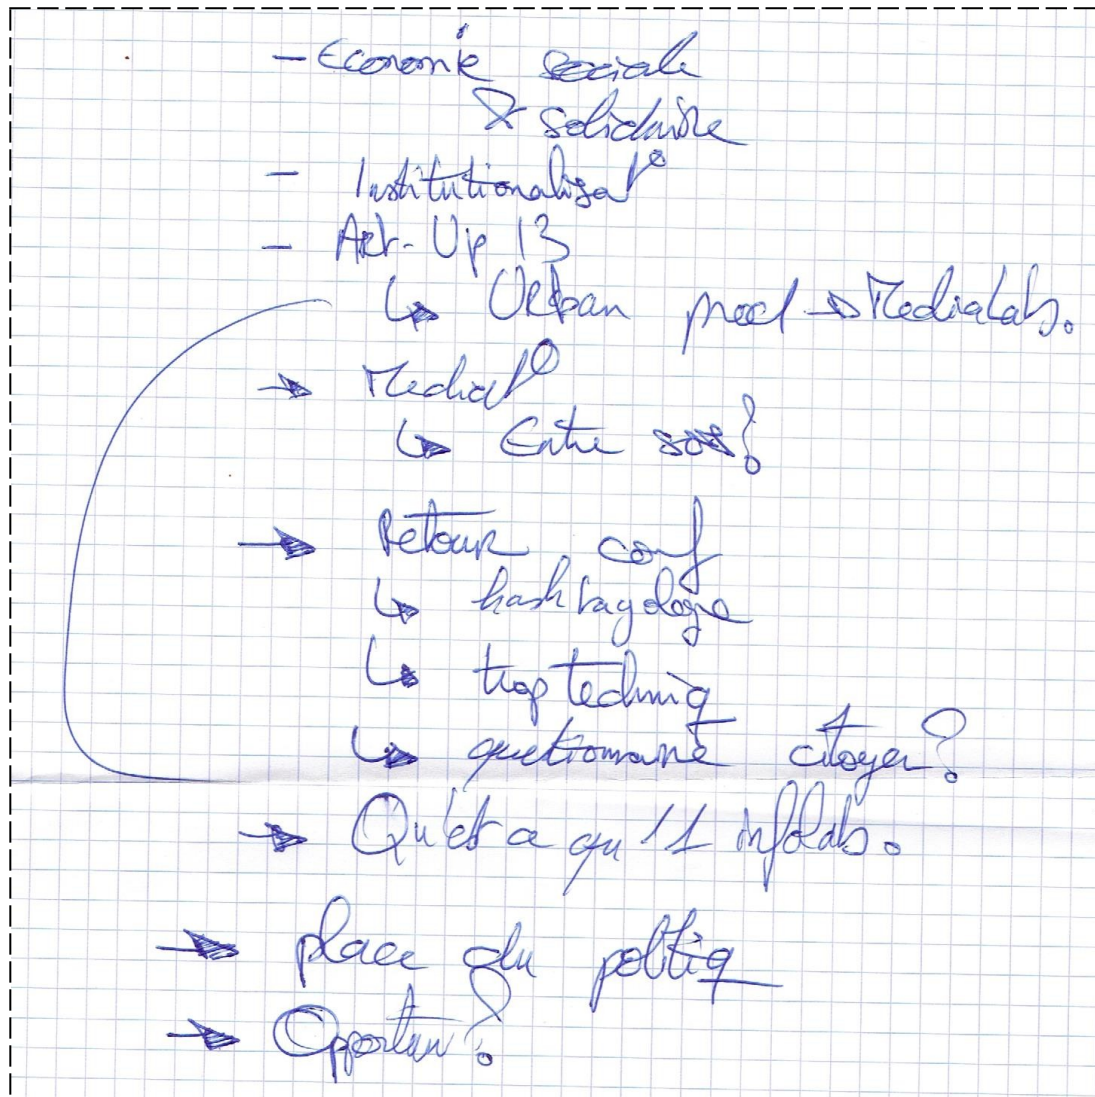 - Economie sociale
& solidaire
- Institutionalisat°
- Act-Up 13
↳ Urban prod → MediaLab.
→ Mediat°
↳ Entre sois?
→ Retour conf
↳ hashtagologie
↳ trop techniq
↳ questionnaire citoyen?
→ Qu'est ce qu'1 infolab.
→ place du politiq
→ Opportun?